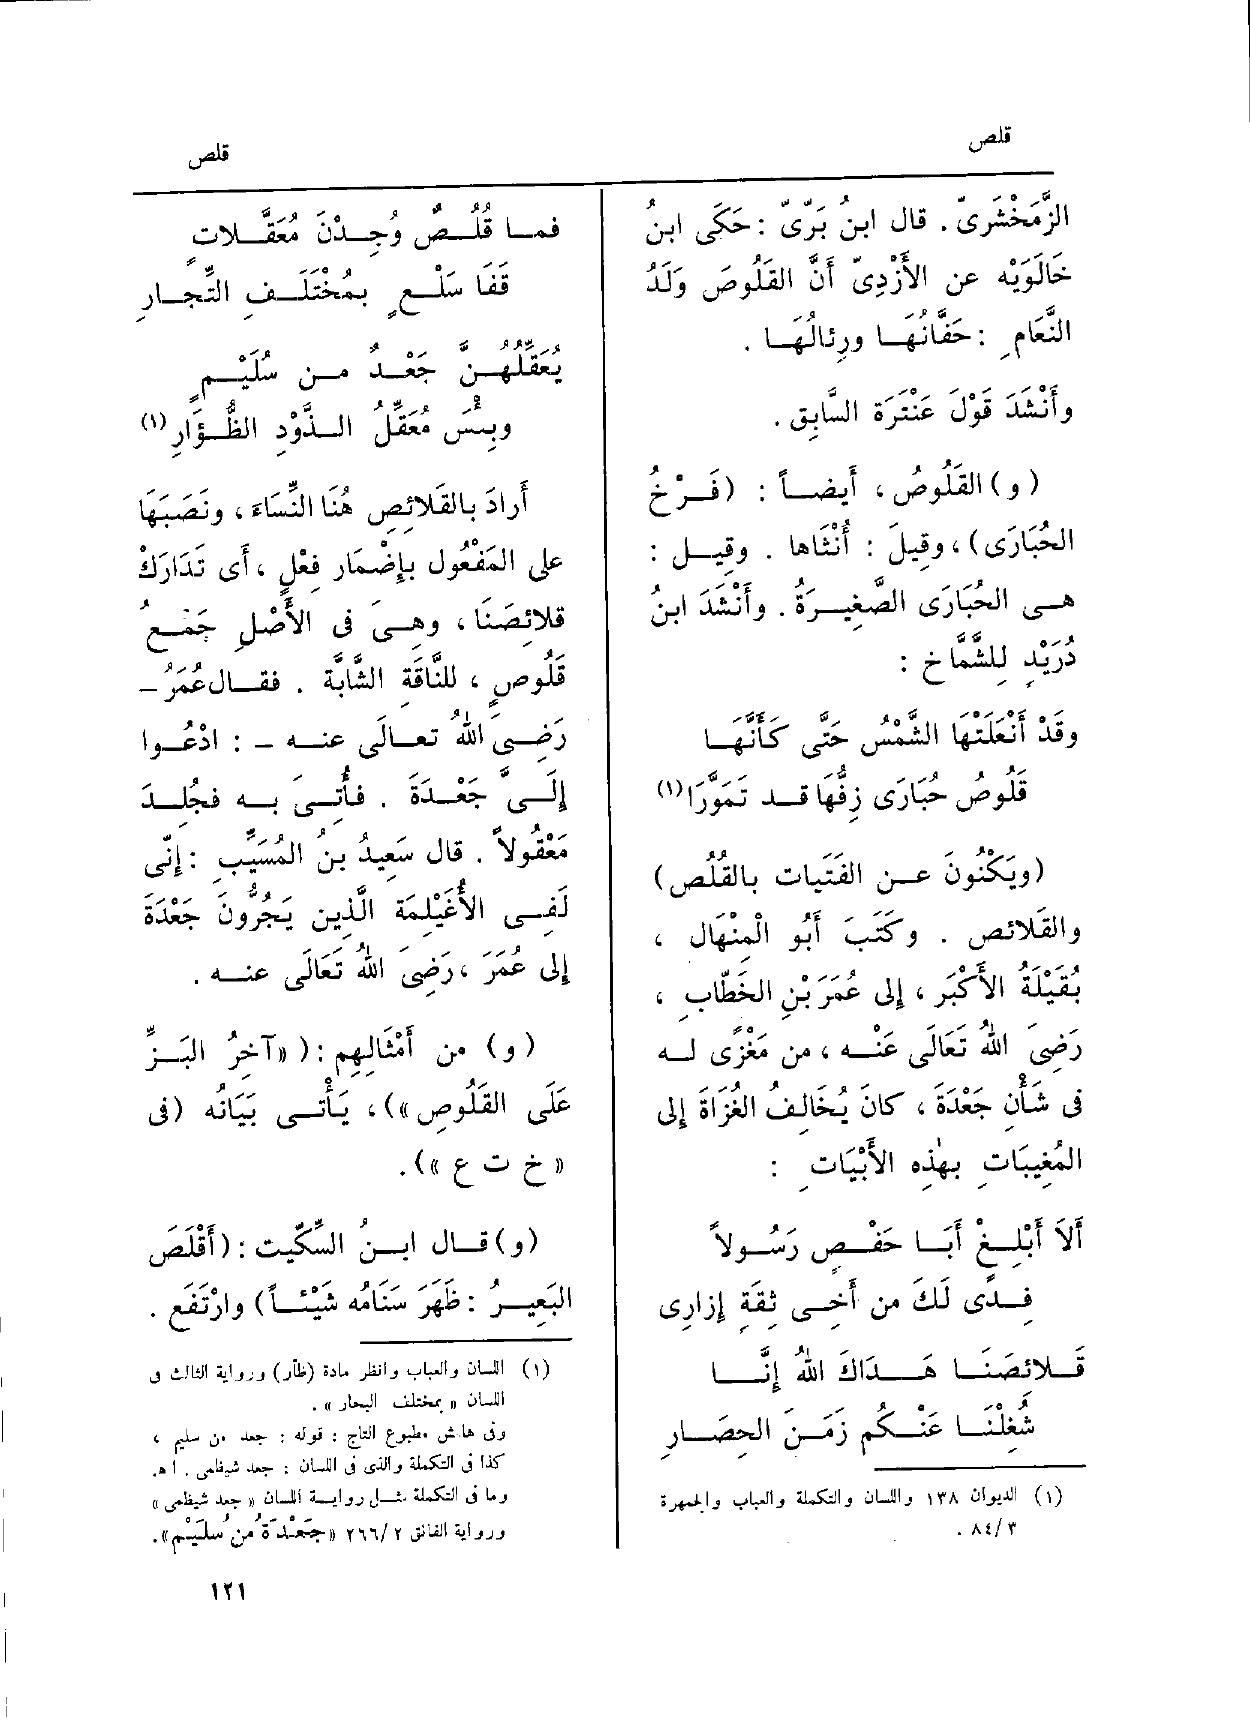 قلص
قلص
الزَّمَخْشَرِىّ. قال ابنُ بَرِّىّ : حَكَى ابنُ
خَالَوَيْه عن الأَزْدِىّ أَنَّ القَلُوصَ وَلَدُ
النَّعَامِ : حَفَّانُهَا ورِئالُهَا .
وأَنْشَدَ قَوْلَ عَنْتَرَة السَّابِق.
(و) القَلُوصُ ، أَيضاً : (فَرْخُ
الحُبَارَى)، وقِيلَ : أُنْثَاها . وقِيل :
هى الحُبَارَى الصَّغِيرَةُ . وأَنْشَدَ ابنُ
دُرَيْدٍ لِلشَّمَّاخ :
وقَدْ أَنْعَلَتْهَا الشَّمْسُ حَتَّى كَأَنَّهَا
قَلُوصُ حُبَارَى زِفُّهَا قد تَمَوَّرَا(١)
(ويَكْنُونَ عن الفَتَيَات بالقُلُص)
والقَلائص . وكَتَبَ أَبُو الْمِنْهَال ،
بُقَيْلَةُ الأَكْبَر ، إلى عُمَرَ بْنِ الخَطَّابِ ،
رَضِىَ اللهُ تَعَالَى عَنْه ، من مَغْزًى له
فى شَأْنِ جَعْدَةَ ، كانَ يُخَالِفُ الغُزَاةَ إلى
المُغِيبَاتِ بهٰذِه الأَبْيَاتِ :
أَلاَ أَبْلِغْ أَبَا حَفْصٍ رَسُولاً
فِدًى لَكَ من أَخِى ثِقَةٍ إزارِى
قَلائصَنَا هَدَاكَ اللهُ إنَّا
شُغِلْنَا عَنْكُم زَمَنَ الحِصَارِ
(١) الديوان ١٣٨ واللسان والتكملة والعباب والجمهرة
٨٤/٣ .
فما قُلُصٌ وُجِدْنَ مُعَقَّلاتٍ
قَفَا سَلْعٍ بمُخْتَلَفِ التِّجارِ
يُعَقِّلُهُنَّ جَعْدٌ من سُلَيْمٍ
وبِئْسَ مُعَقِّلُ الذَّوْدِ الظُّؤَارِ(١)
أَرادَ بالقَلائصِ هُنَا النِّسَاءَ ، ونَصَبَهَا
على المَفْعُول بإِضْمَار فِعْلٍ ، أَى تَدَارَكْ
قلائصَنَا ، وهِىَ فى الأَصْلِ جَمْعُ
قَلُوصٍ ، للنَّاقَةِ الشَّابَّة . فقال عُمَرُ –
رَضِىَ اللهُ تعالَى عنه – : ادْعُوا
إلَىَّ جَعْدَةَ . فأُتِىَ به فجُلِدَ
مَعْقُولاً . قال سَعِيدُ بنُ المُسَيِّبِ : إنِّى
لَفِى الأُغَيْلِمَة الَّذِين يَجُرُّونَ جَعْدَةَ
إلى عُمَرَ ، رَضِىَ اللهُ تَعَالَى عنه .
(و) من أَمْثَالِهِم : («آخِرُ البَزِّ
عَلَى القَلُوصِ»)، يَأْتِى بَيَانُه (فى
«خ ت ع»).
(و) قال ابنُ السِّكِّيت : (أَقْلَصَ
البَعِيرُ : ظَهَرَ سَنَامُه شَيْئاً) وارْتَفَع .
(١) اللسان والعباب وانظر مادة (ظأر) ورواية الثالث فى
اللسان «بمختلف البحار» .
وفى هامش مطبوع التاج : قوله : جعد من سليم ،
كذا فى التكملة والذى فى اللسان : جعد شيظمى . اهـ.
وما فى التكملة مثل رواية اللسان «جعد شيظمى»
ورواية الفائق ٢٦٦/٢ «جَعْدَةُ من سُلَيْم».
١٢١